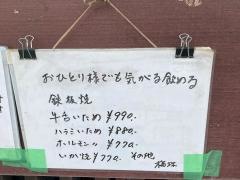 おひとり様でも気がる飲める
鉄板焼
牛舌いため ¥990.
ハラミいため ¥880.
ホルモン 〃 ¥770.
いか焼 ¥770. その他